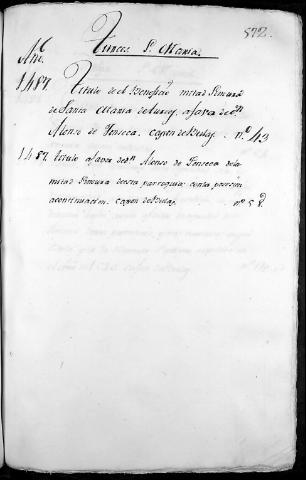 572.
Turces Sta. Maria.
Año.
1487. Titulo de el Benefiçio mitad Sincura
de Santa Maria de turces, a favor de Dn.
Alonso de Fonseca. Caxon de Bulas. nº. 43
1487. titulo a favor de Dn. Alonso de Fonseca de la
mitad Sincura de esta parroquia con la posesion
a continuacion. Caxon de Bulas. nº. 58.